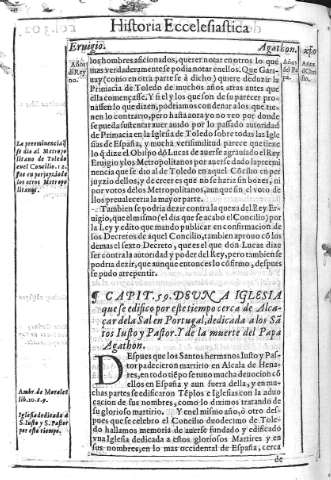 Historia Eccelesiastica
Eruigio.
Agathon.
Años del Rey no.
Años del Pa pa.
los hombres aficionados, querer notar contros lo què
mas verdaderamente se podia notar en ellos. Que Gari-
uay (como en otra parte se à dicho) quiere deduzir la
Primacia de Toledo de muchos años atras antes que
ella començasse. Y si el y los que son de su parecer pro-
uassen lo que dizen, podriamos condenar a los que tie-
nen lo contrario, pero hasta aora yo no veo por donde
se pueda sustentar auer auido por lo passado autoridad
de Primacia en la Iglesia de Toledo sobre todas las Igle
sias de España, y mucha verisimilitud parece que tiene
lo q̃ dize el Obispo dõ Lucas de auerse agrauiado el Rey
Eruigio y los Metropolitanos por auerse dado la preemi
nencia que se dio al de Toledo en aquel Cõcilio en per-
juyzio dellos, y de creer es que no se haria sin bozes, ni
por votos delos Metropolitanos, aunque sin el voto de
llos preualeceria la mayor parte.
La preeminencia q̃
se dio al Metropo
litano de Toledo
en el Concilio. 12.
fue en perjuyzio de
los otros Metropo
litanos.
Tambien se podria dezir contra la quexa del Rey Er-
uigio, que el mismo (el dia que se acabo el Concilio) por
la Ley y edito que mando publicar en confirmacion de
los Decretos de aquel Concilio, tambien aprouo cõ los
demas el sexto Decreto, que es el que don Lucas dize
ser contra la autoridad y poder del Rey, pero tambien se
podria dezir, que aunque entonces lo cõfirmo, despues
se pudo arrepentir.
¶ CAPIT. 59. DE VNA IGLESIA
que se edifico por este tiempo cerca de Alca-
çar de la Sal en Portugal, dedicada a los Sã
tos Iusto y Pastor. Y de la muerte del Papa
Agathon.
DEspues que los Santos hermanos Iusto y Pas-
tor padecieron martirio en Alcala de Hena-
res, en todo tiẽpo se tuuo mucha deuocion cõ
ellos en España y aun fuera della, y en mu-
chas partes se edificaron Tẽplos e Iglesias con la aduo
cacion de sus nombres, como lo diximos tratando de
su glorioso martirio. Y en el mismo año, ò otro des-
pues que se celebro el Concilio duodecimo de Tole-
do hallamos memoria de auerse fundado y edificado
vna Iglesia dedicada a estos gloriosos Martires y en
sus nombre, en lo mas occidental de España, cerca
de
Ambr. de Morales
lib. 10. c. 9.
Iglesia dedicada à
S. Iusto y S. Pastor
por este tiempo.